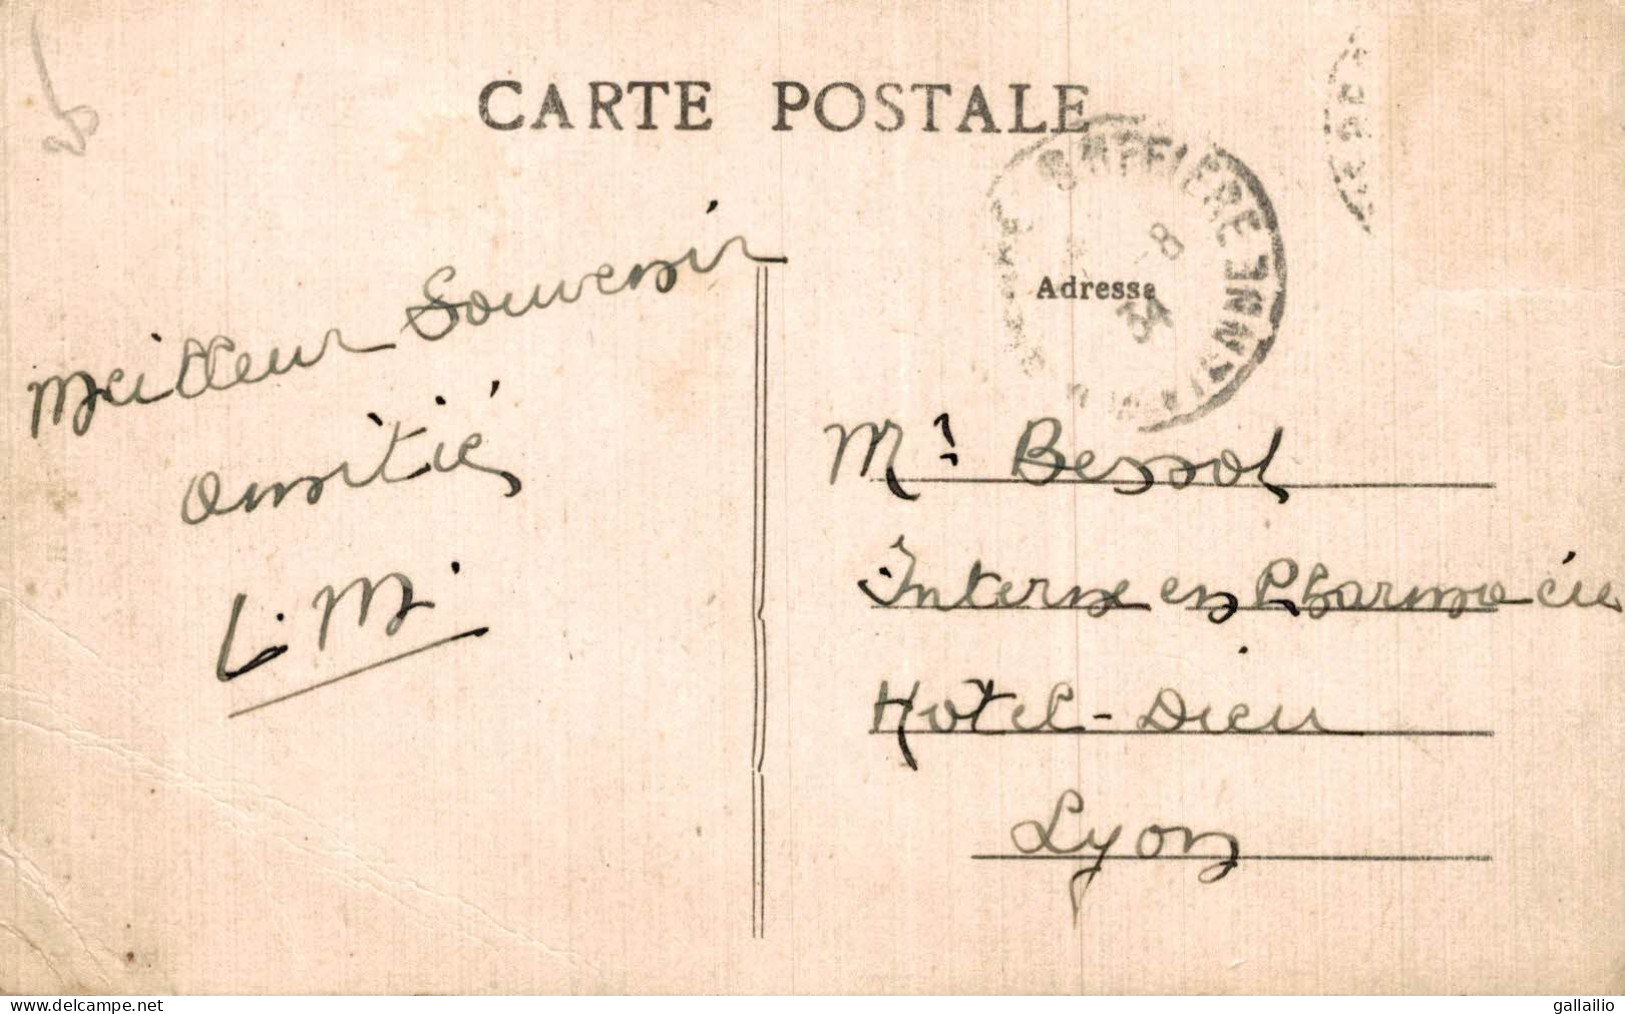 25
CARTE POSTALE
8
Adresse
34
Meilleur Souvenir
Amitiés
L. M.
Mr Bessol
Interne en Pharmacie
Hôtel-Dieu
Lyon
www.delcampe.net
gallailio